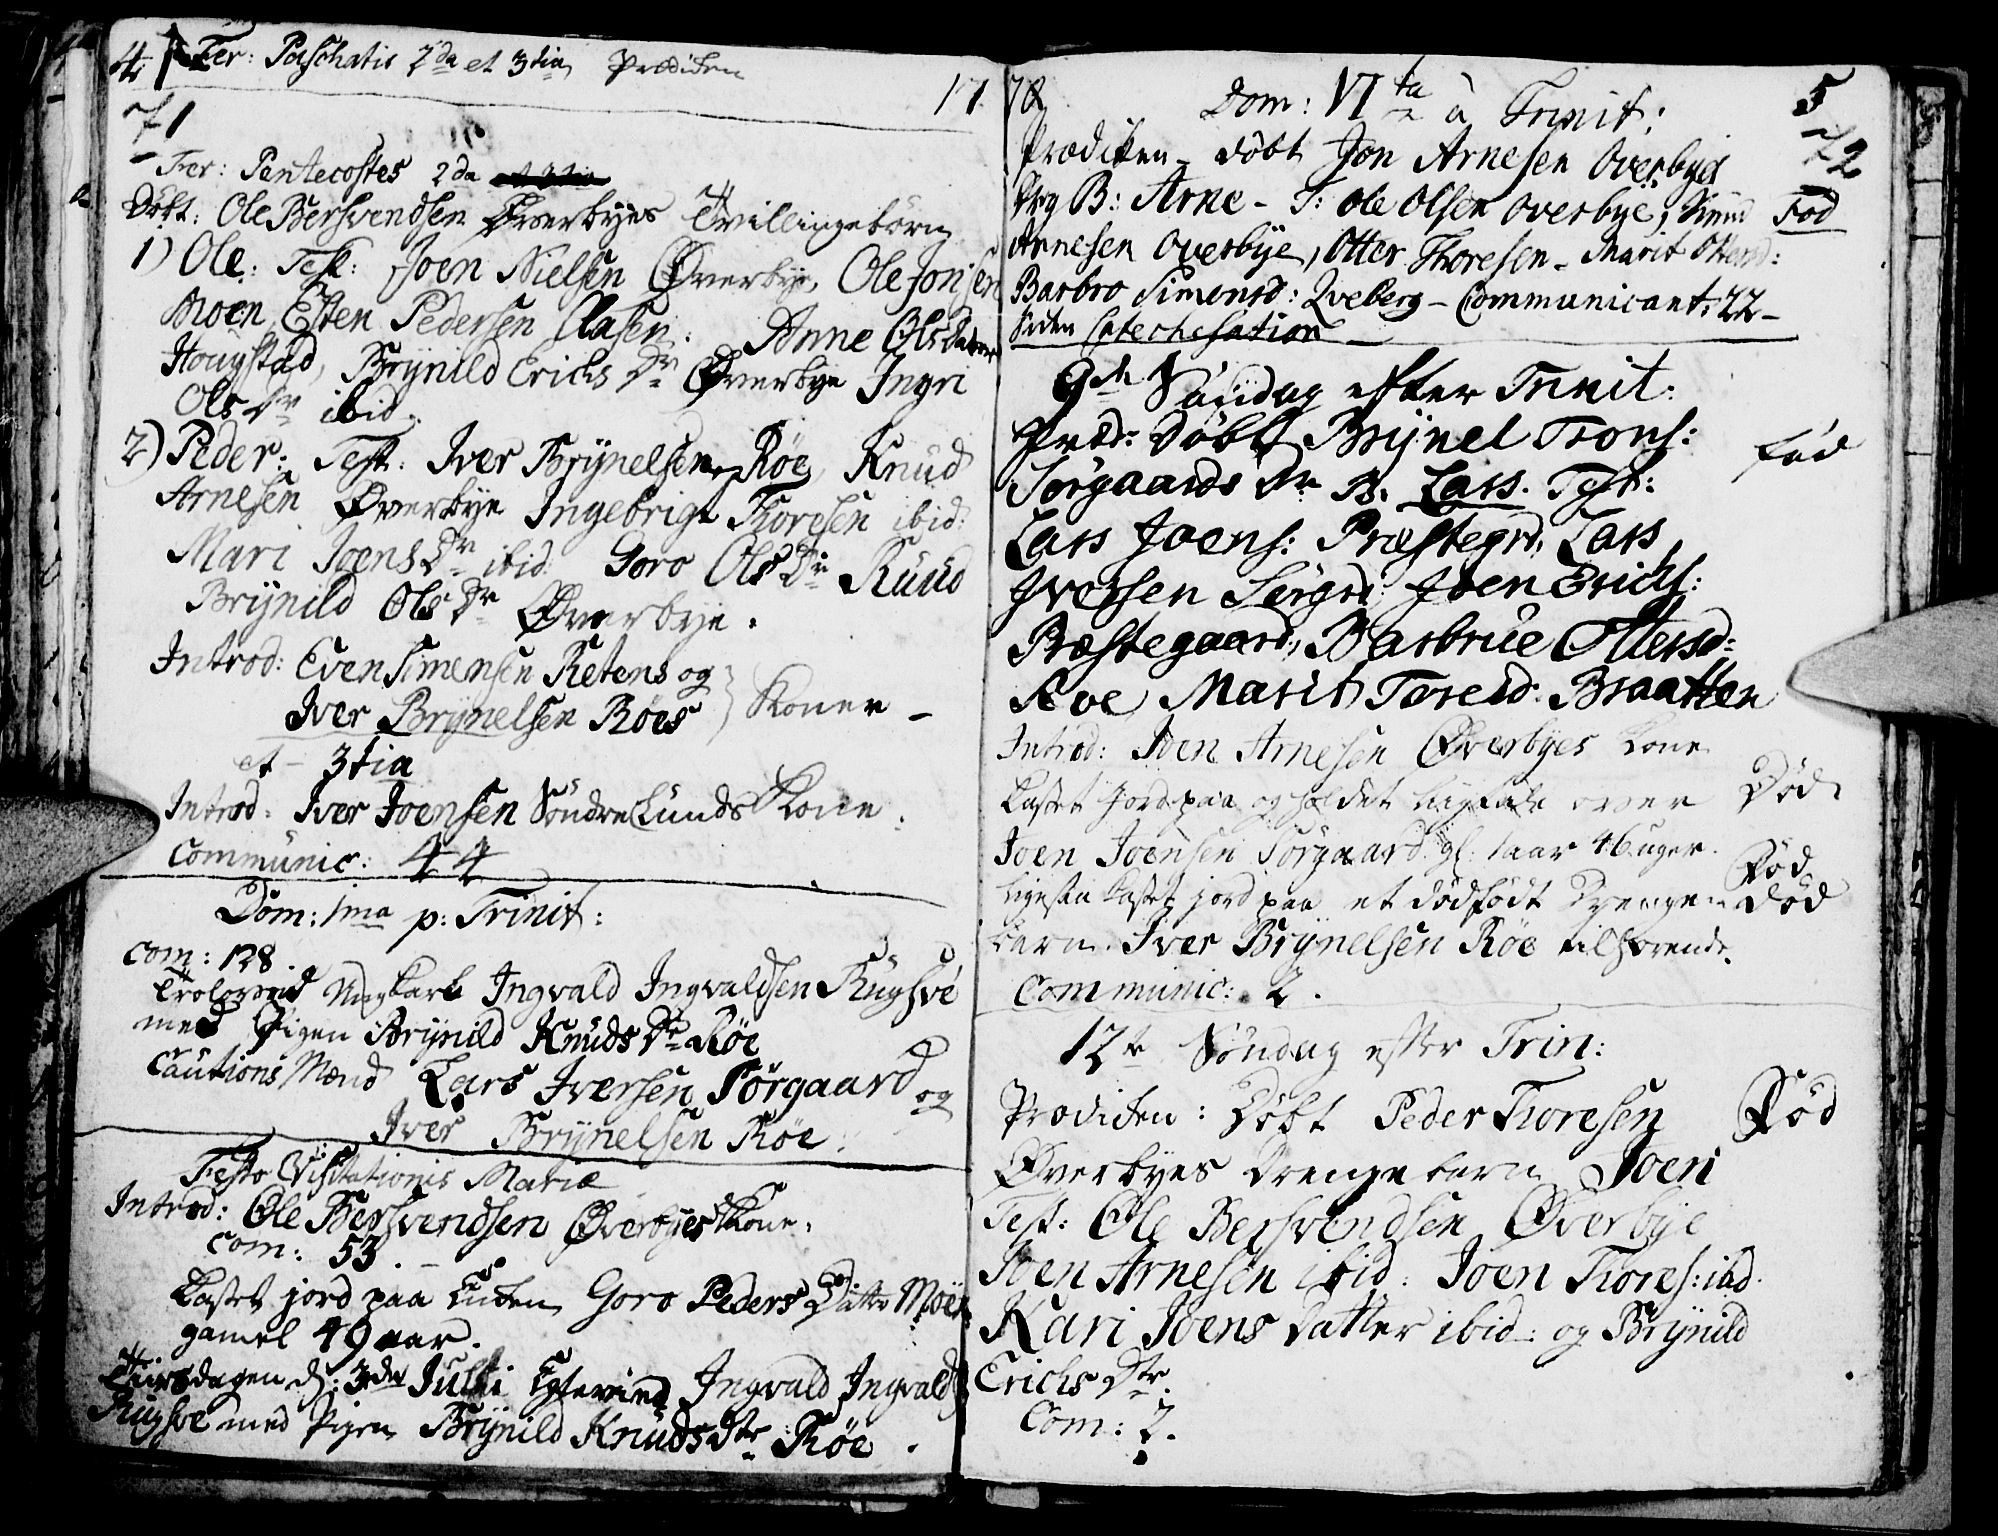 4
Fer: Paschatis 2da et 3tia Prædiken
71
17
Fer: Pentecostes 2da et 3tia
Döbt: Ole Bersvendsen Øverbyes Tvillingebörn
1) Ole: Test: Joen Nielsen Øverbye, Ole Jonsen
Moen Esten Pedersen Aasen. Anne Olsdatter
Hougstad, Brynild Erichs Dr Øverbye Ingri
Ols Dr ibid.
2) Peder: Test: Iver Brynelsen Røe, Knud
Arnesen Øverbye Ingebrigt Thoresen ibid:
Mari Joens Dr ibid: Goro Ols Dr Ruud
Brynild Ols Dr Øverbye.
Introd: Even Simensen Retens og
Iver Brynelsen Röes } Koner -
et - 3tia
Introd: Iver Joensen Söndre Lunds Kone.
Communic: 44
Dom: 1ma p: Trinit:
Com: 128.
Trolovned Ungkarl Ingvald Ingvaldsen Rugsve
med Pigen Brynild Knuds Dr Röe
Cautions Mænd Lars Iversen Sörgaard og
Iver Brynelsen Röe.
Festo Visitationis Mariæ
Introd: Ole Bersvendsen Øverbyes Kone.
Com: 53. -
Kastet jord paa Enken Goro Peders Datter Moen
gamel 49 aar.
Tiirsdagen d: 3die Julii Egteviet Ingvald Ingvalds
Rugsve med Pigen Brynild Knuds Dtr Röe.
78
Dom: VI ta à Trinit:
5
72
Prædiken - döbt Jon Arnesen Overbyes
Drg B: Arne - T: Ole Olsen Overbye, Knud Fod
Arnesen Overbye, Otter Thoresen - Marit Ottersd:
Barbro Simensd: Qveberg - Communicant: 22 -
Siden Catechesation -
9de Søndag efter Trinit:
Præd: döbt Brynel Trons: föd
Sörgaards Dr B. Lars. Test:
Lars Joens: Præstegrd, Lars
Iversen Sörgrd: Joen Erichs:
Præstegaard, Barbrue Ottersd:
Roe, Marit Toresd: Braatten
Introd: Joen Arnesen Øverbyes Kone
Kastet Jord paa og holdet Liigtale over Död
Joen Joensen Sörgaard gl: 1 aar 46 uger.
Föd
Ligesaa Kastet jord paa et dödfödt Drenge- död
barn. Iver Brynelsen Röe tilhörende.
Communic: 2.
12te Söndag efter Trin:
Prædiken: Döbt Peder Thoresen Föd
Øverbyes Drengebarn Joen
Test: Ole Bersvendsen Øverbye
Joen Arnesen ibid: Joen Thores: ibd.
Kari Joens Datter ibid: og Brynild
Erichs Dtr.
Com: 2.